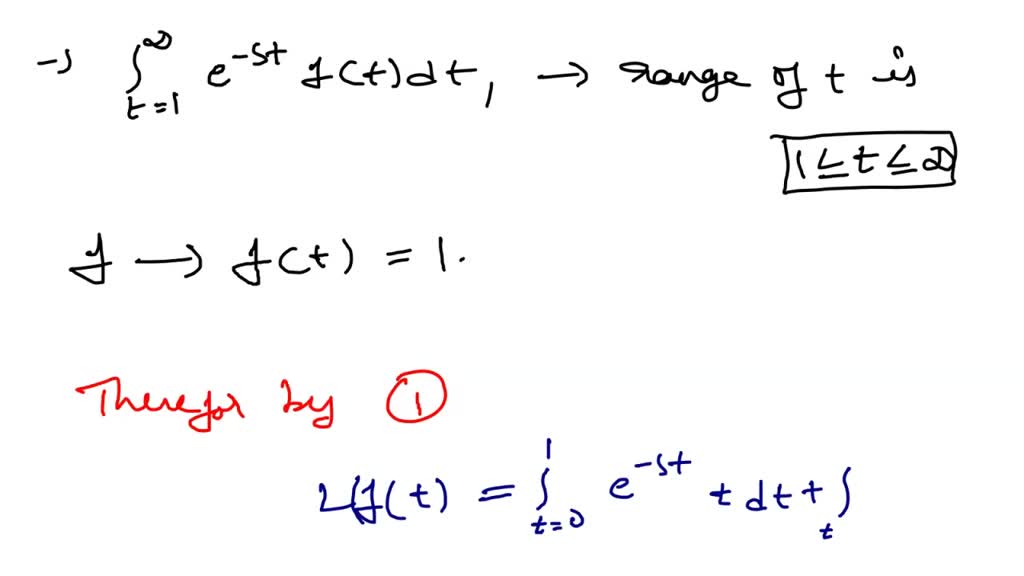 → ∫_{t=1}^{∞} e^{-st} f(t) dt, → range of t is
1 ≤ t ≤ ∞
f → f(t) = 1.
Therefor by ①
L{f(t) = ∫_{t=0}^{1} e^{-st} t dt + ∫_{t}